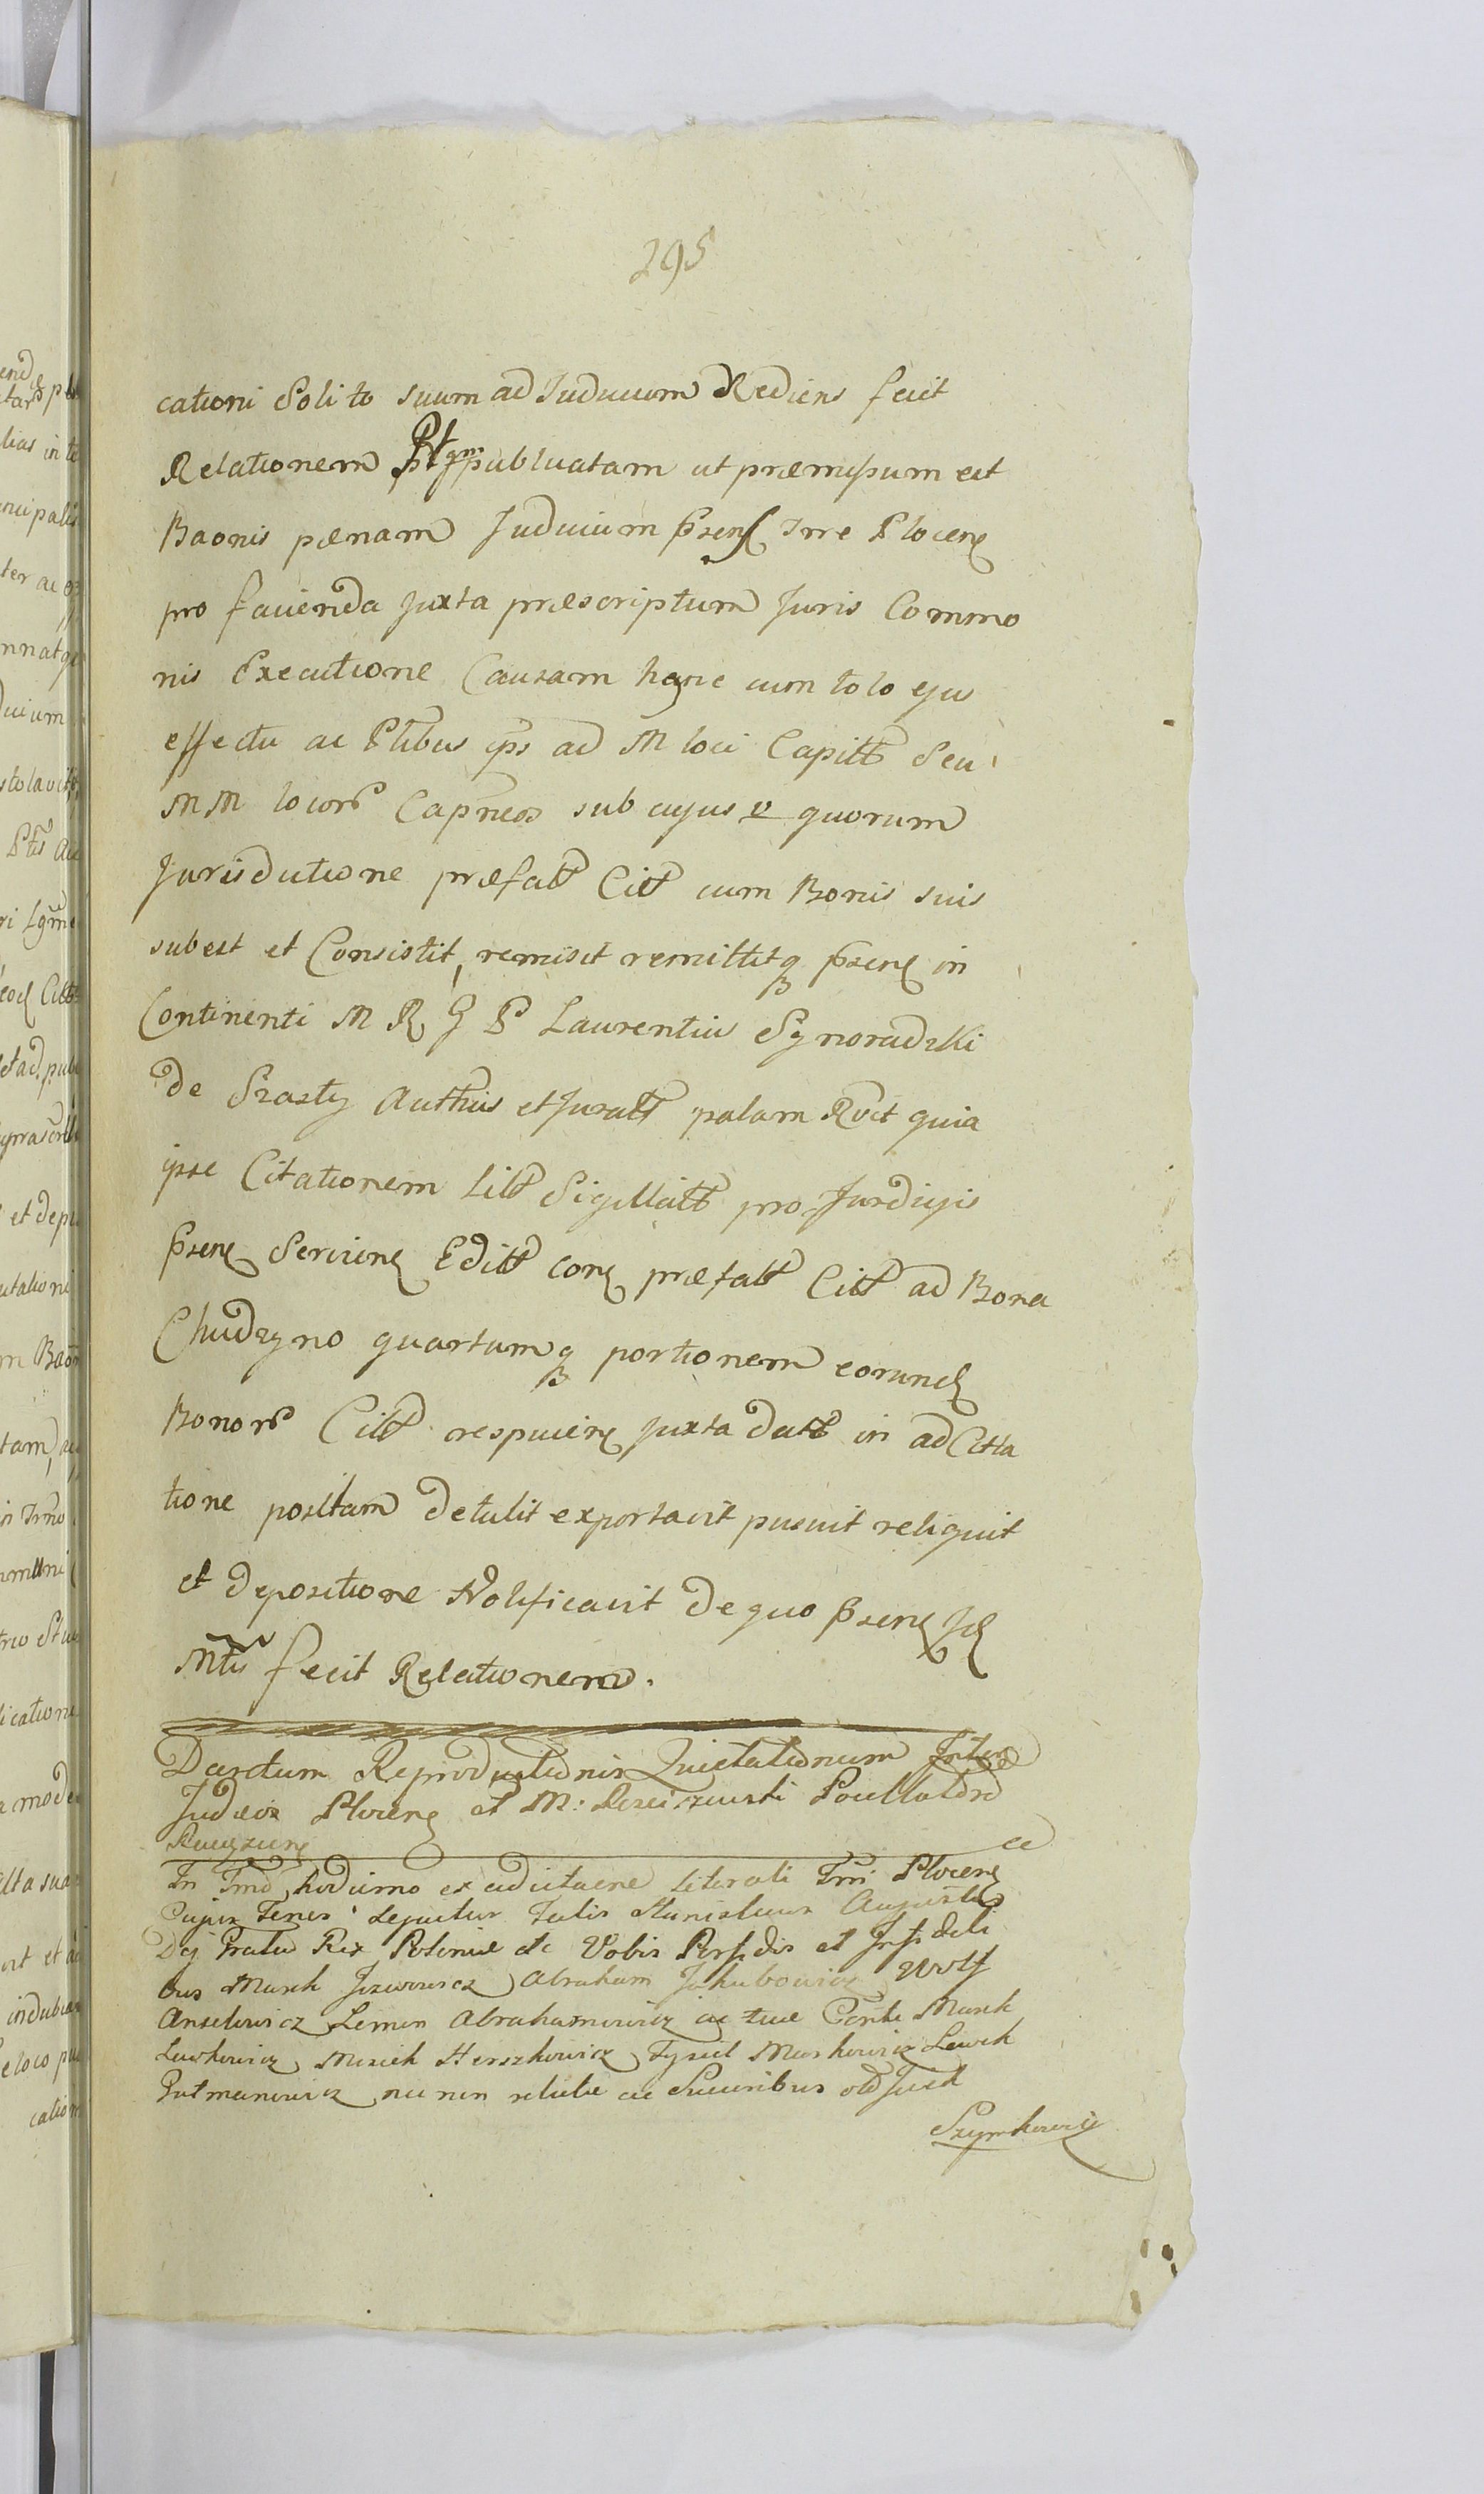 295
cationi Solito suum ad Judicium Rediens fecit
Relationem publicatam ut præmissum est
Baonis pænam Judicium psens Trre Plocens
pro facienda juxta præscriptum Juris Commo
nis Executione Causam hanc cum toto ejus
effectu ac Ptibus ips ad M loci Capitt Seu
MM locors Capneos sub cujus v quorum
Jurisdictione præfatt Citt cum Bonis suis
subest et Consistit, remisit remittitq psens in
Continenti M R G P Laurentius Sgnoradzki
de Szasty Authus et Juratt palam Rvit quia
ipse Citationem Litt Sigillatt pro Jurdiijis
psens Serviens Editt cons præfatt Citt ad Bona
Chudzyno quartamq portionem eorund
Bonors Citt respiciens juxta datt in ad Citta
tione positam detulit exportavit posuit reliquit
et depositione Notificavit de quo psens Jd
Mtis fecit Relationem.
Decretum Reproductionis Quietationum Inter
Judæos Plocens et M:
In Tmo hodierno ex adcitaone literali Trri Plocens
Cujus Tenor Sequitur Talis Stanislaus Augustus
Dej Gratia Rex Poloniæ etc Vobis Perfidis et Infideli
bus Marek Abraham Jakubowicz Wolf
Anselowicz Lemon Abrahamowicz ac tuæ Marek
Lewkowicz Herszkowicz Markowicz Lewek
Gutmanowicz nec non ac
Szymkowicz